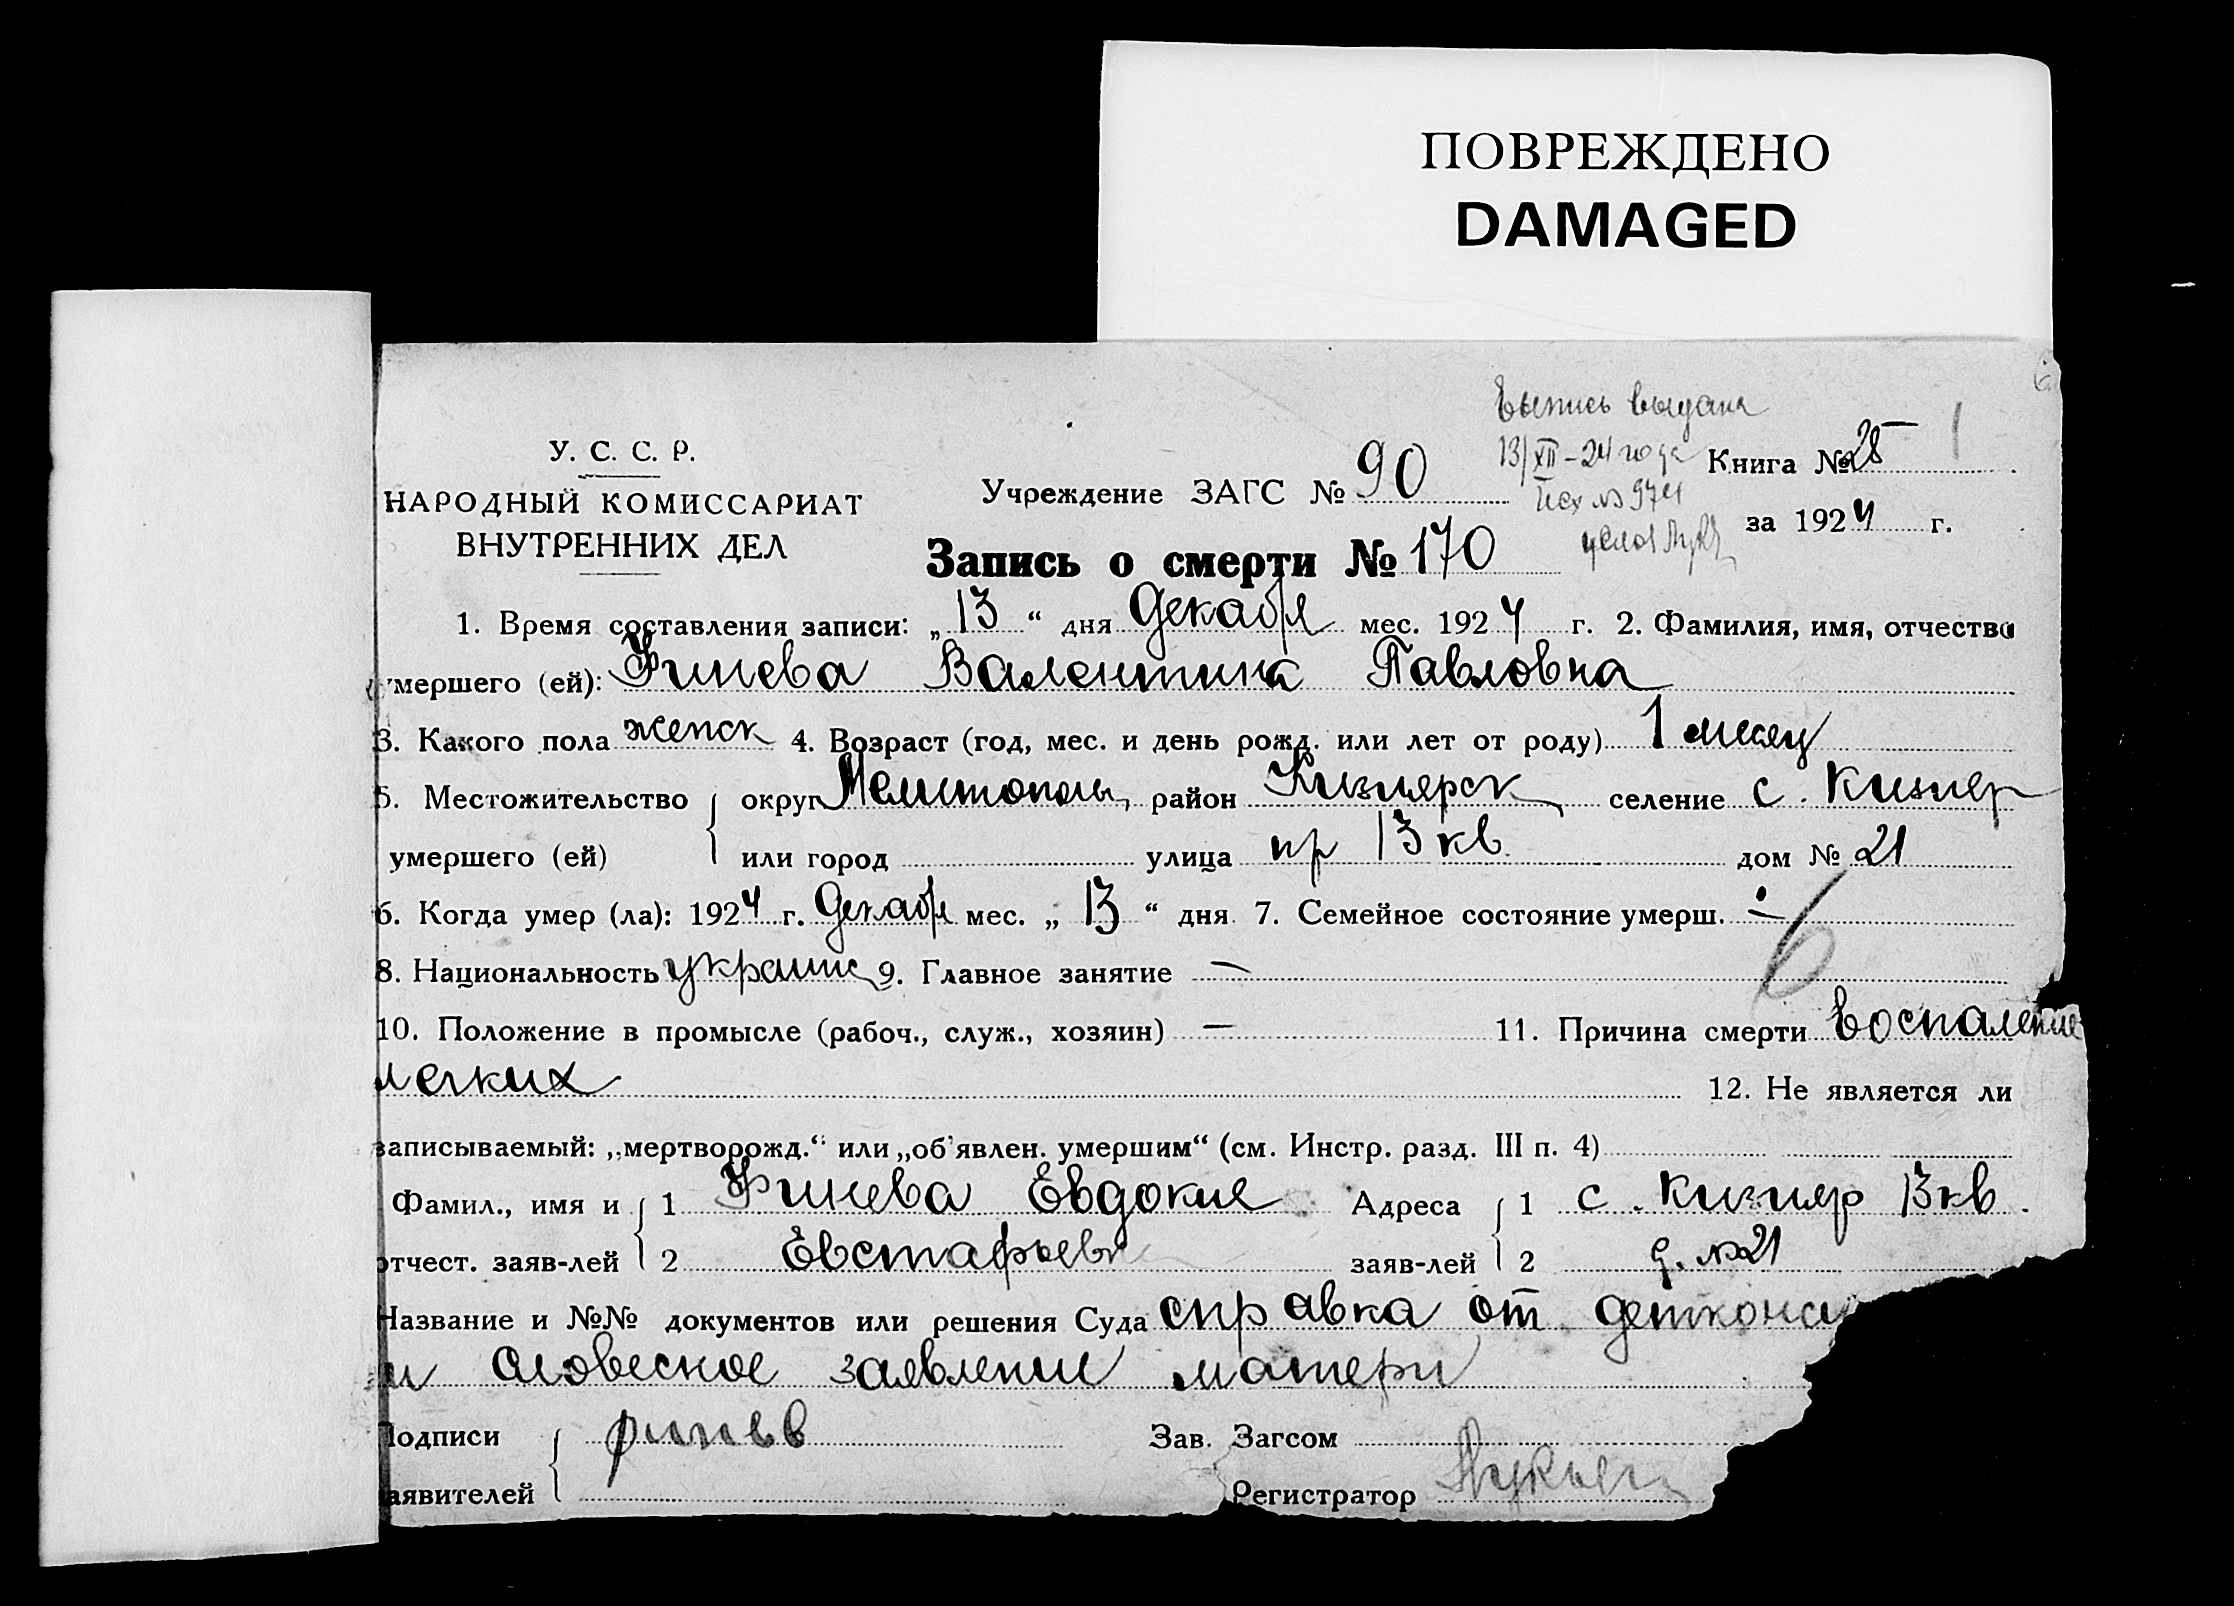 ПОВРЕЖДЕНО
DAMAGED
Выпись выдана
13/XII-24 года
Исх №974
У. С. С. Р.
НАРОДНЫЙ КОМИССАРИАТ
ВНУТРЕННИХ ДЕЛ
Учреждение ЗАГС № 90
Книга № 28
за 1924 г.
Запись о смерти № 170
1. Время составления записи: „13“ дня Декабря мес. 1924 г. 2. Фамилия, имя, отчество
умершего (ей): Финева Валентина Павловна
3. Какого пола женск 4. Возраст (год, мес. и день рожд. или лет от роду) 1 месяц
5. Местожительство округ Мелитополь район Кизиярск селение с. Кизияр
умершего (ей) или город улица пр 13 кв. дом № 21
6. Когда умер (ла): 1924 г. Декабря мес. „13“ дня 7. Семейное состояние умерш. –
8. Национальность украинс 9. Главное занятие –
10. Положение в промысле (рабоч., служ., хозяин) – 11. Причина смерти воспаление
легких 12. Не является ли
записываемый: „мертворожд.“ или „об'явлен. умершим“ (см. Инстр. разд. III п. 4)
Фамил., имя и 1 Финева Евдокия Адреса 1 с. Кизияр 13 кв.
отчест. заяв-лей 2 Евстафьевн заяв-лей 2 д. №21
Название и №№ документов или решения Суда справка от детконс
и словесное заявление матери
Подписи Зав. Загсом
заявителей Регистратор